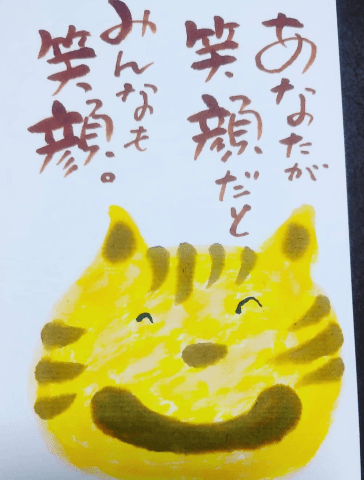 あなたが
笑顔だと
みんなも
笑顔。